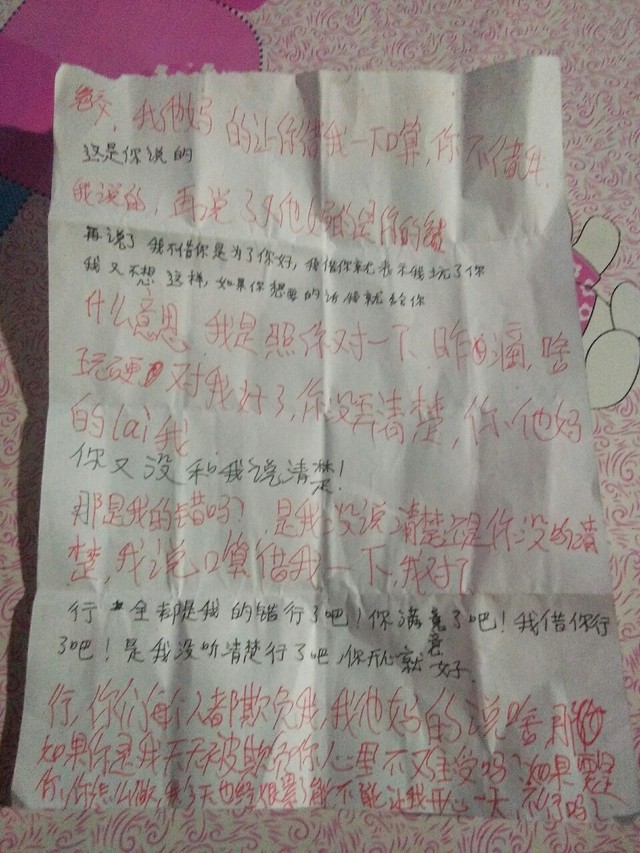 绝交，我他妈的让你借我一下口算，你不借我，
这是你说的
我说的，再说了又他妈的是你的错
再说了我不借你是为了你好，我借你就表示我玩了你
我又不想这样，如果你想要的话我就给你
什么意思，我是照你对一下，昨 ，啥
玩 对我好了，你没弄清楚，你他妈
的lai我
你又没和我说清楚！
那是我的错吗？是我没说清楚还是你没听清
楚，我说口算借我一下，我对了
行全都是我的错行了吧！你满意了吧！我借你行
了吧！是我没听清楚行了吧，你开心就好.
行，你们每人都欺负我，我他妈的说啥 那
如果你是我天天被欺负你心里不难受吗？如果 是
你，你怎么做， 天 能不能让我开心一天，不行吗？